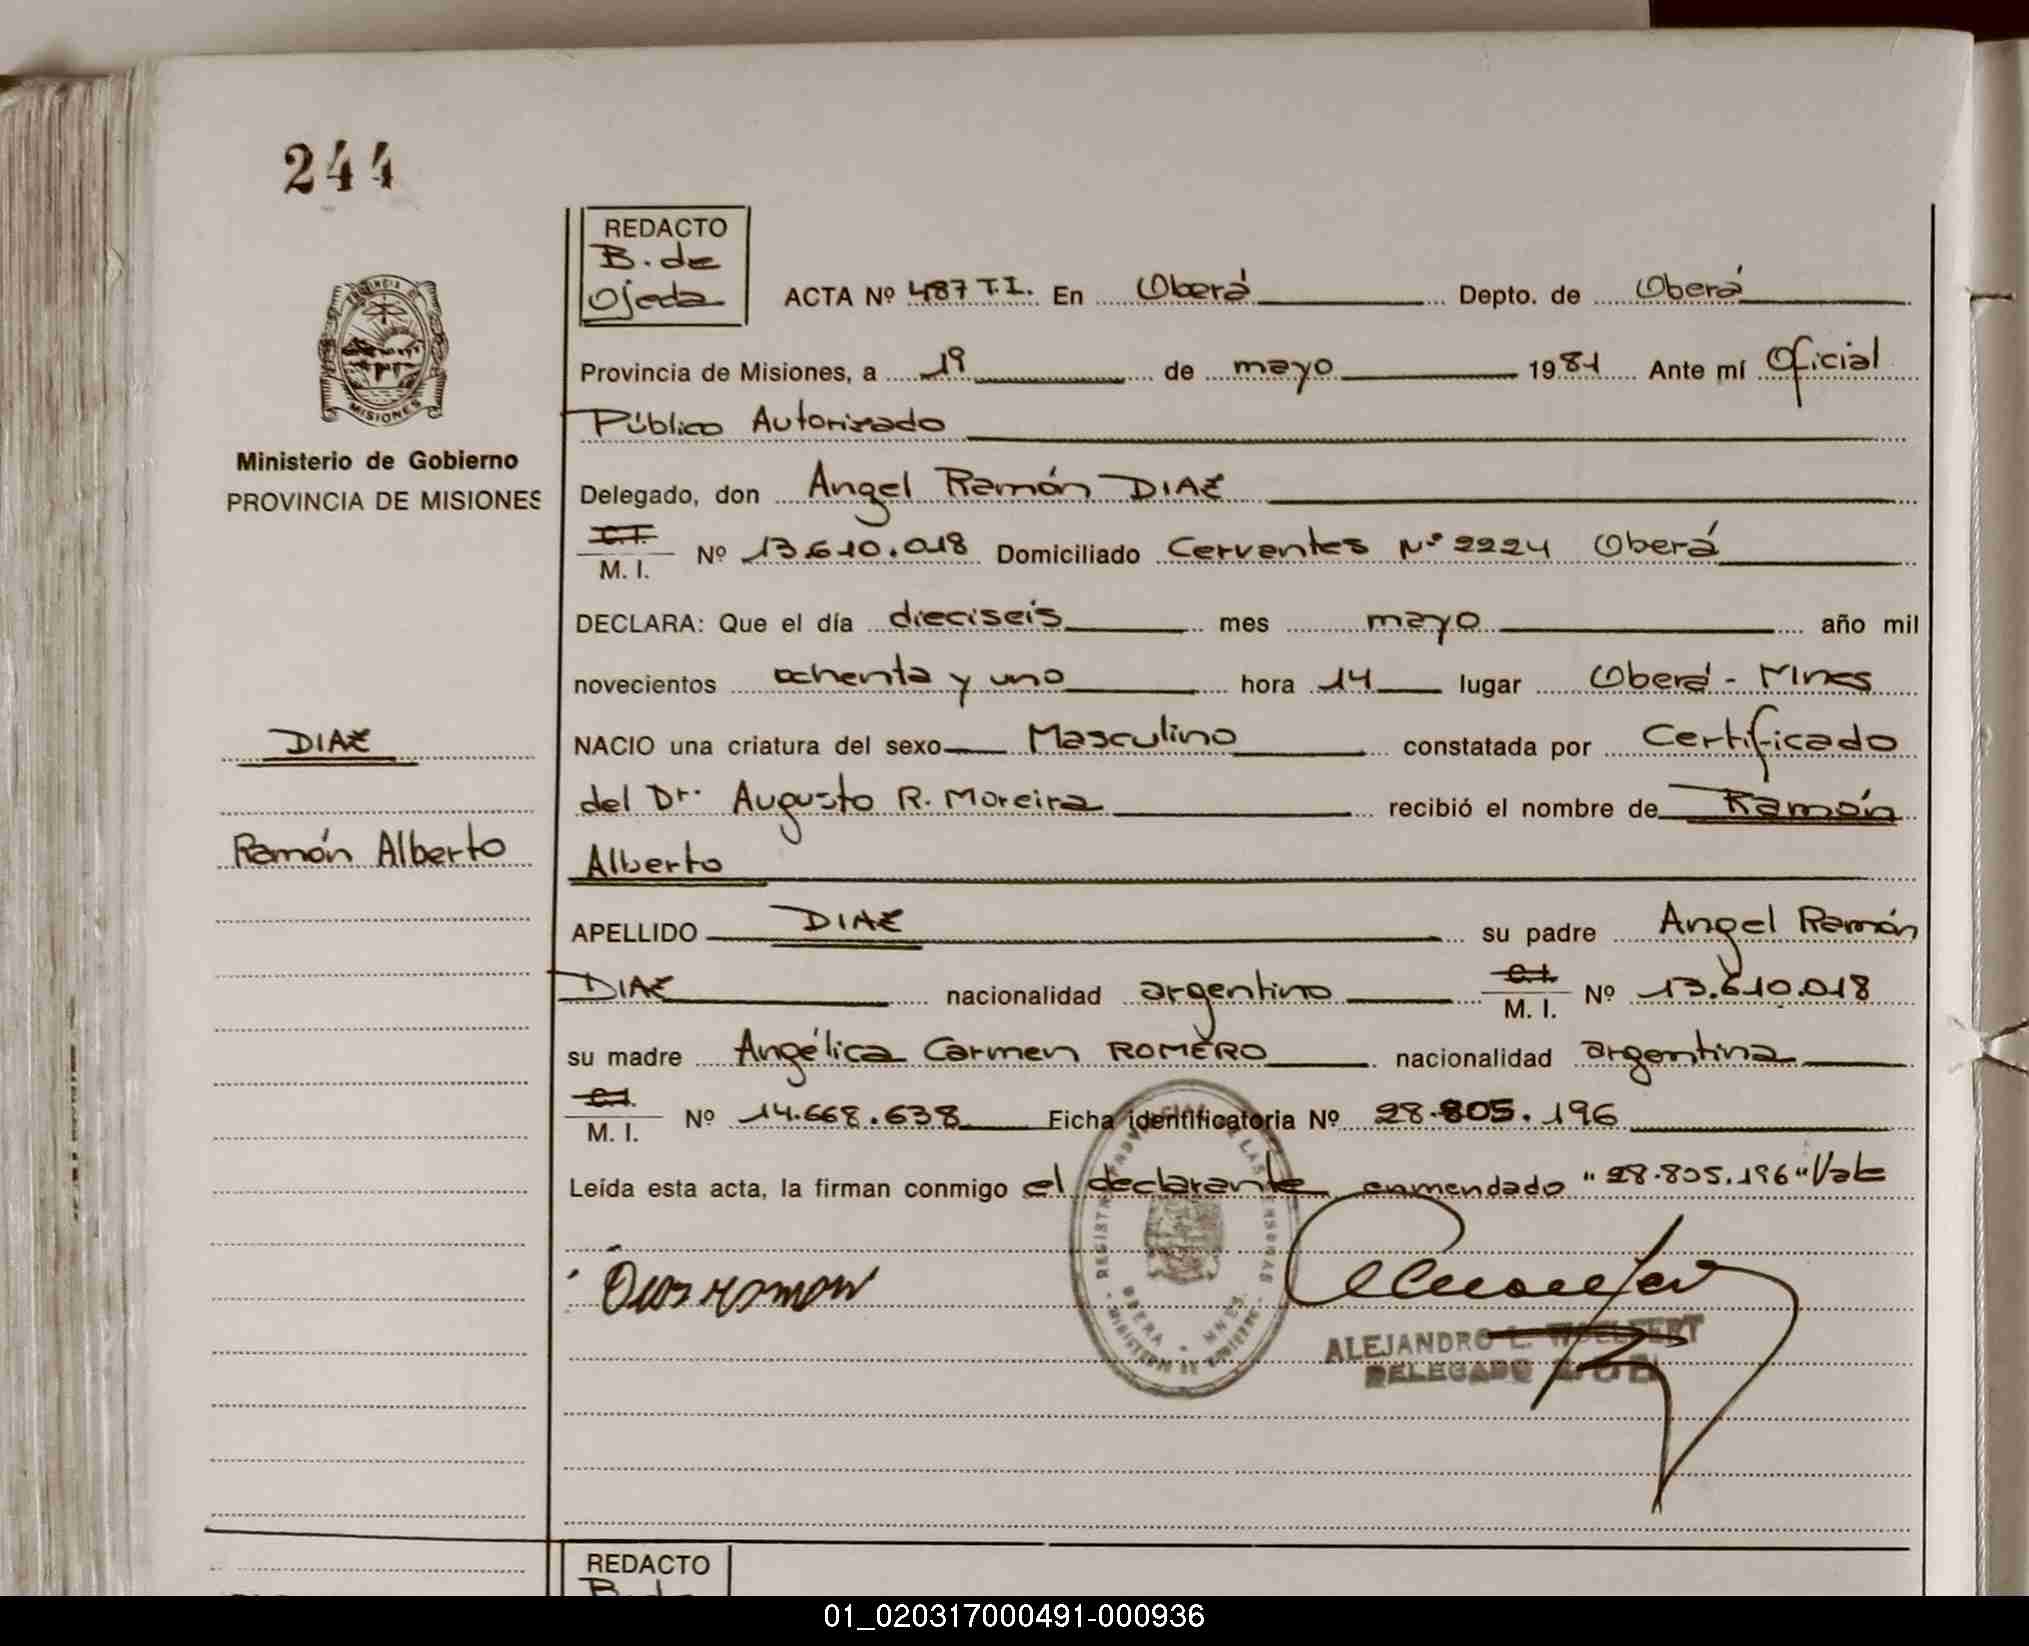 244
REDACTO
B. de
Ojeda
ACTA Nº 487 T.I. En Oberá Depto. de Oberá
Provincia de Misiones, a 19 de mayo 1981 Ante mí Oficial
Público Autorizado
Ministerio de Gobierno
PROVINCIA DE MISIONES
Delegado, don Angel Ramón DIAZ
C.I.
M. I. Nº 13.610.018 Domiciliado Cervantes Nº 2224 Oberá
DECLARA: Que el día dieciseis mes mayo año mil
novecientos ochenta y uno hora 14 lugar Oberá - Mnes
DIAZ
NACIO una criatura del sexo Masculino constatada por Certificado
del Dr. Augusto R. Moreira recibió el nombre de Ramón
Ramón Alberto
Alberto
APELLIDO DIAZ su padre Angel Ramón
DIAZ nacionalidad argentino C.I.
M. I. Nº 13.610.018
su madre Angélica Carmen ROMERO nacionalidad argentina
C.I.
M. I. Nº 14.668.638 Ficha identificatoria Nº 28.805.196
Leída esta acta, la firman conmigo el declarante enmendado "28.805.196" Vale
Dias ramon
OBERA - MNES.
ALEJANDRO L. WOELFERT
DELEGADO
REDACTO
B. de
01_020317000491-000936